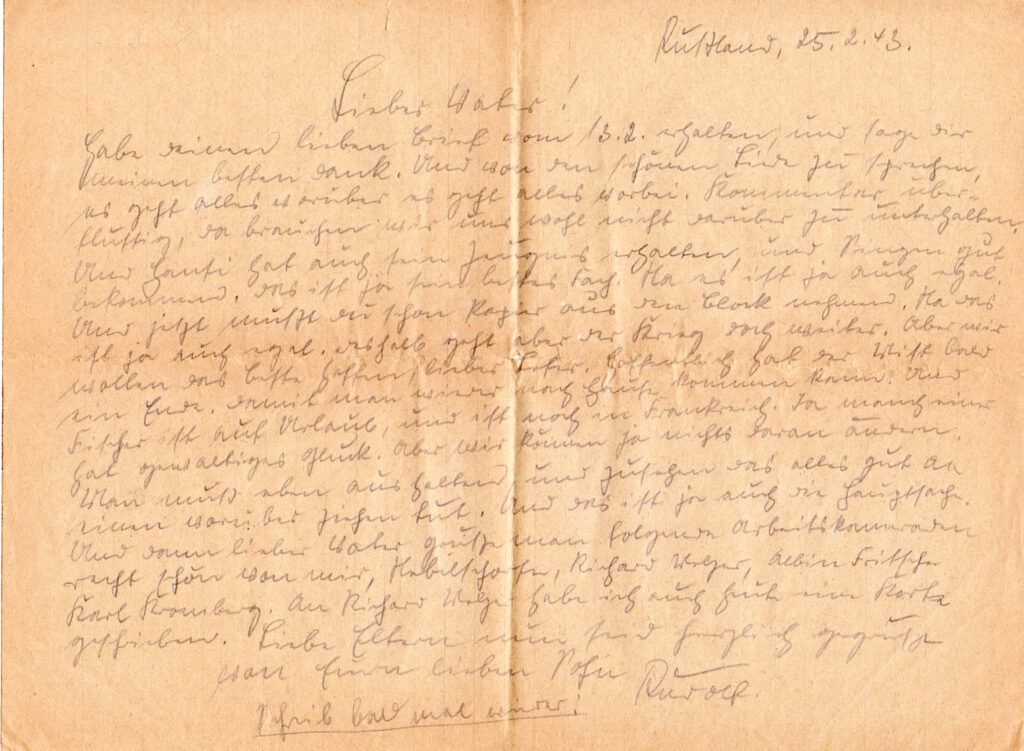 Rußland, 25.2.43.
Lieber Vater!
Habe deinen lieben Brief vom 13.2. erhalten, und sage dir
meinen besten dank. Und von den schönen Liede zu sprechen,
es geht alles vorüber es geht alles vorbei. Kommentar über-
flüßig, da brauchen wir uns wohl nicht darüber zu unterhalten.
Und Hansi hat auch sein Zeugnis erhalten, und Singen gut
bekommen. das ist ja sein bestes Fach. Na es ist ja auch egal.
Und jetzt mußt du schon Papier aus den Block nehmen. Na das
ist ja auch egal. deshalb geht aber der Krieg doch weiter. Aber wir
wollen das beste hoffen, lieber Hoffentlich hat der Mist bald
ein Ende. damit man wieder nach Hause kommen kann. Und
Fischer ist auf Urlaub, und ist noch in Frankreich. Ja manch einer
hat gewaltiges Glück. Aber wir können ja nichts daran ändern.
Man muß eben aushalten und zusehen das alles gut an
einen vorüber ziehen tut. Und das ist ja auch die Hauptsache.
Und dann lieber Vater grüße man folgende Arbeitskameraden
recht schön von mir, Richard Welzer, Albin Fritsche
Karl Kromberg. An Richard Welzer habe ich auch heute eine Karte
geschrieben. Liebe Eltern nun seid herzlich gegrüßt
von Eurn lieben Sohn
Rudolf.
Schreib bald mal wieder!